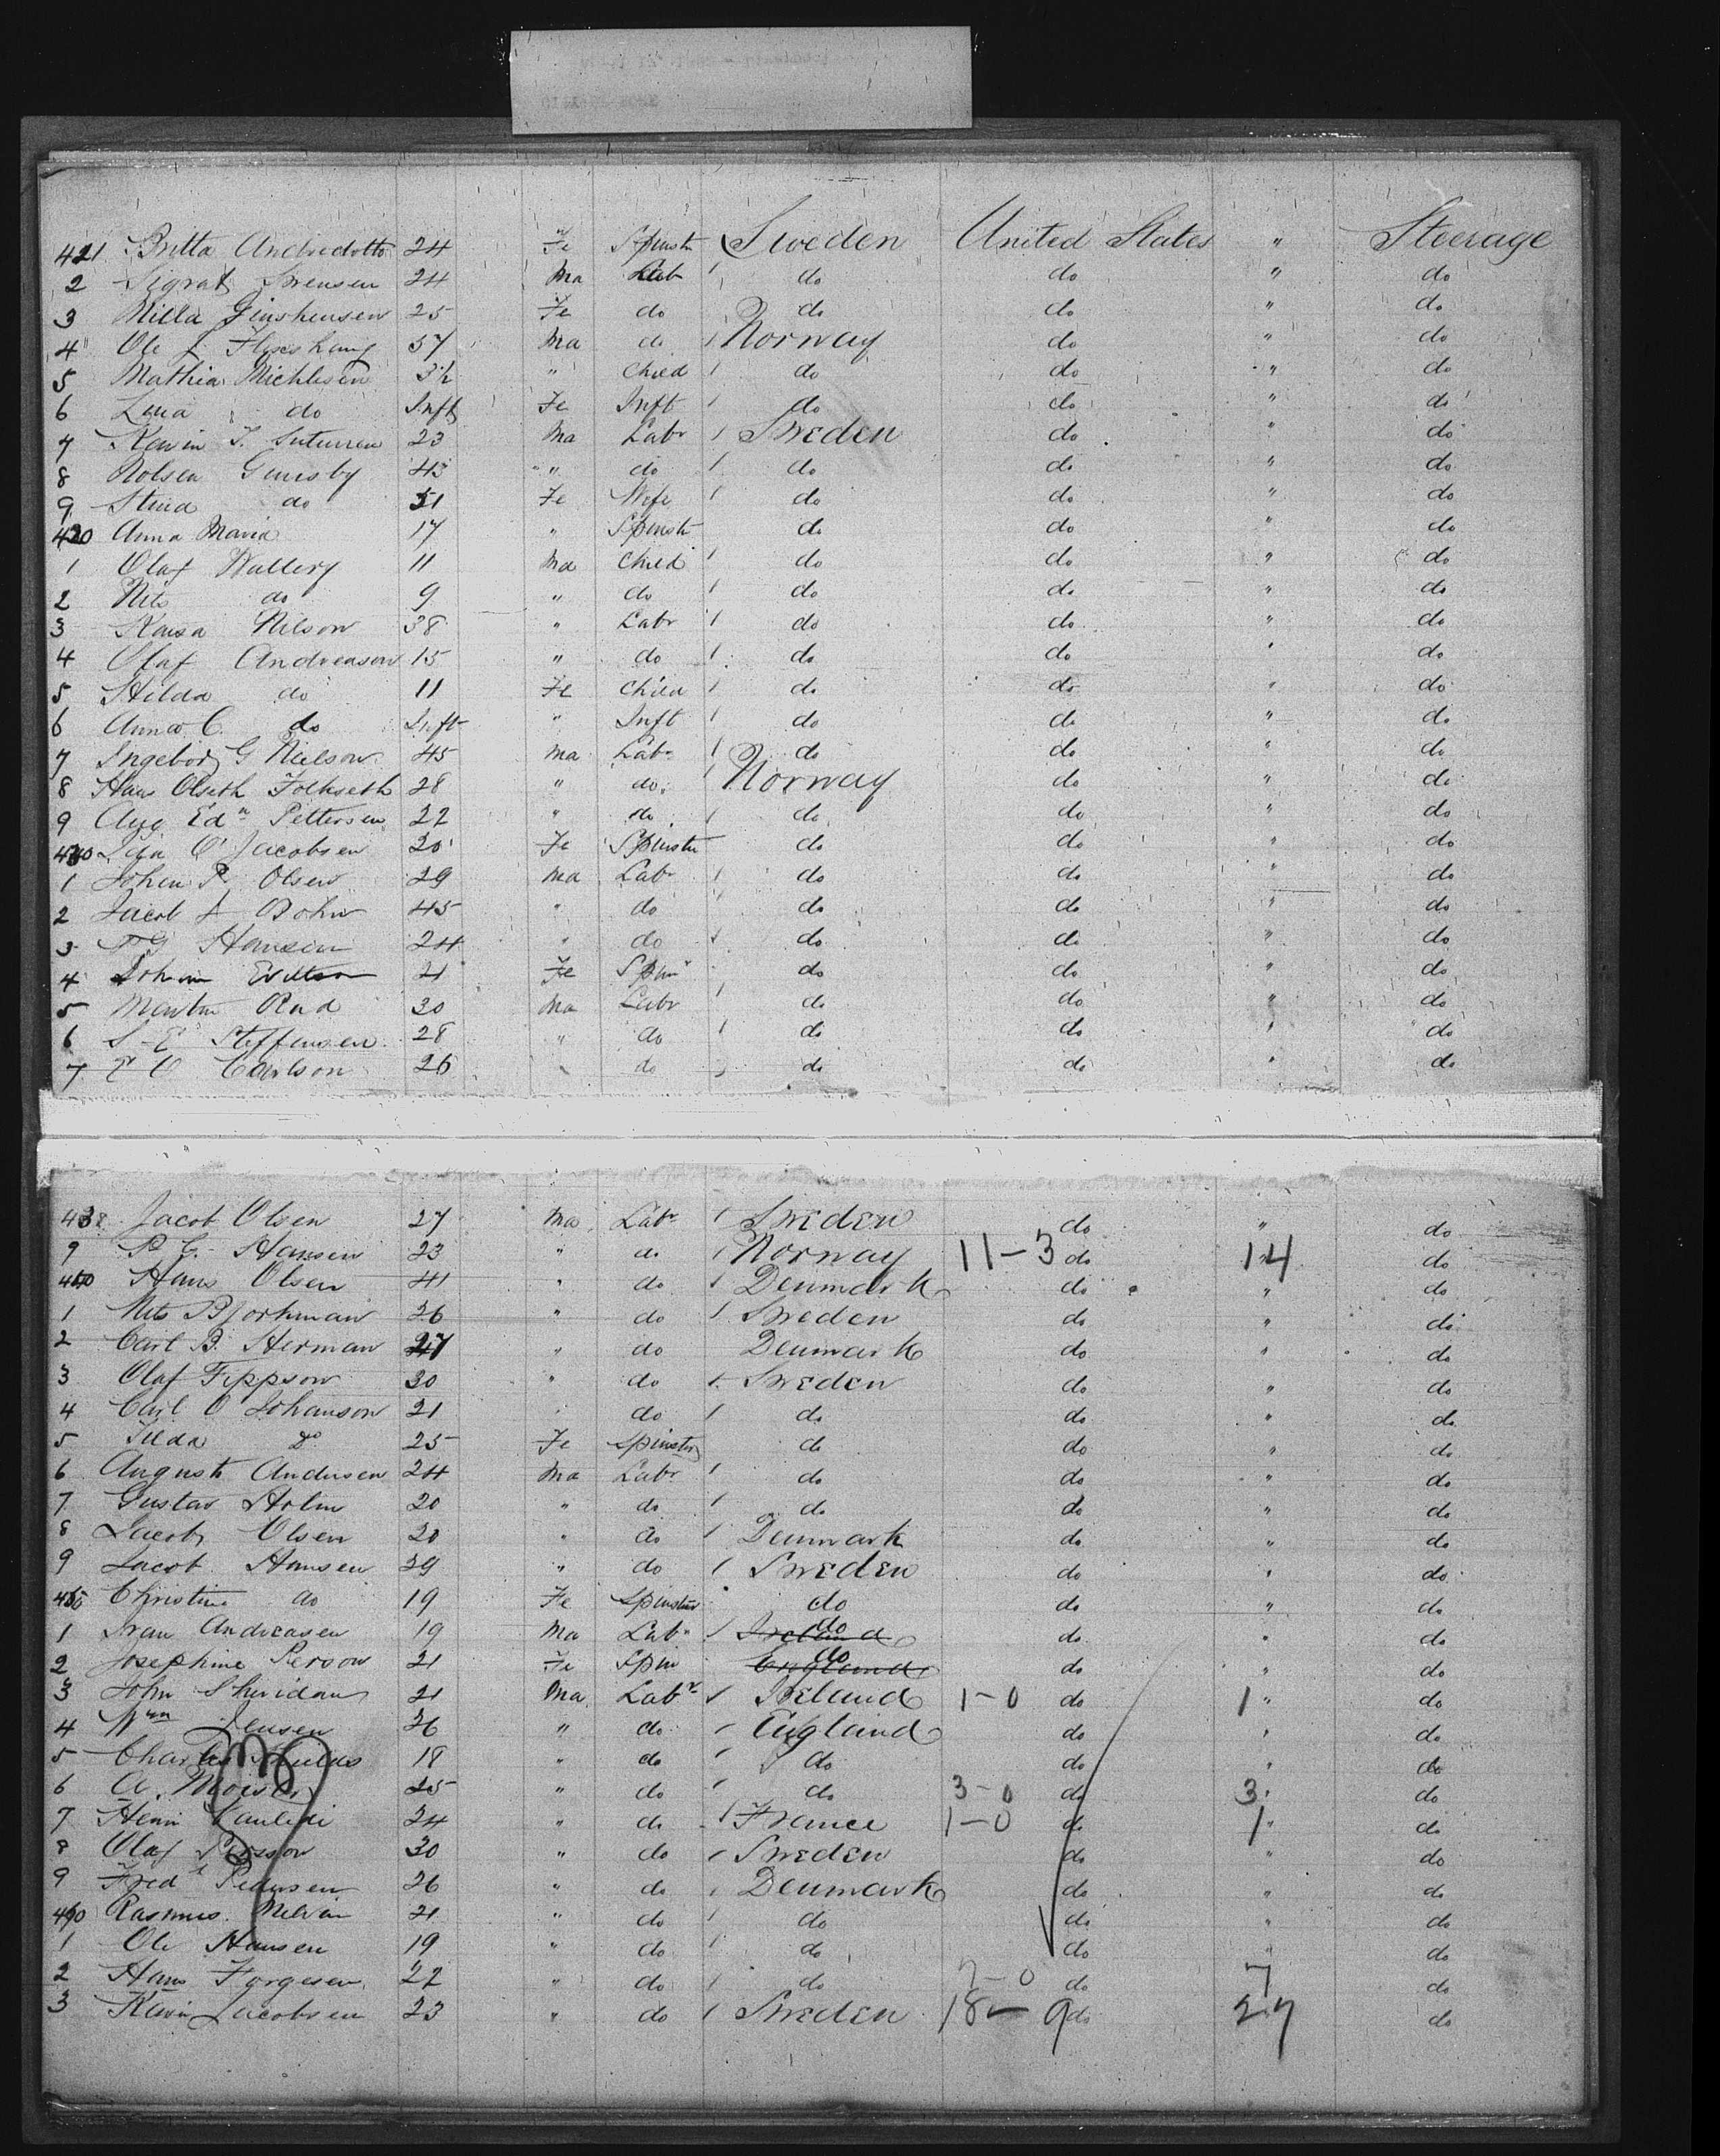 421 Britta Andredotto 24 Fe Spinstr Sweden United States " Steerage
2 Sigrat Swensen 24 Ma Lab do do " do
3 Milla 25 Fe do do do " do
4 Ole J 57 Ma do Norway do " do
5 Mathia Michlesen 3½ " Child do do " do
6 Lina do Inft Fe Inft do do " do
7 23 Ma Labr Sweden do " do
8 43 " do do do " do
9 Stina do 51 Fe Wife do do " do
430 Anna Maria 17 " Spinstr do do " do
1 Olaf Wallery 11 Ma Child do do " do
2 Nils do 9 " do do do " do
3 Kaisa Nilson 38 " Labr do do " do
4 Olaf Andreason 15 " do do do " do
5 Hilda do 11 Fe Child do do " do
6 Anna C. do Inft " Inft do do " do
7 Ingeborg G Neilson 45 Ma Labr do do " do
8 Hans Olseth Folkseth 28 " do Norway do " do
9 Aug Edn Pettersen 22 " do do do " do
440 Ida O Jacobsen 20 Fe Spinstr do do " do
1 Johen P. Olsen 29 Ma Labr do do " do
2 Jacob J Bohn 45 " do do do " do
3 Hansen 24 " do do do " do
4 Johan 21 Fe Spinr do do " do
5 Martin Rud 30 Ma Labr do do " do
6 S E Steffensen 28 " do do do " do
7 E O Carlson 26 " do do do " do
438 Jacob Olsen 27 Ma Labr Sweden do " do
9 P. C. Hansen 23 " do Norway 11-3 do 14 do
440 Hans Olsen 41 " do Denmark do " do
1 Nils Bjorkman 26 " do Sweden do " do
2 Carl B. Herman 27 " do Denmark do " do
3 Olaf Fippson 30 " do Sweden do " do
4 Carl O Johanson 21 " do do do " do
5 Tilda Do 25 Fe Spinster do do " do
6 August Andersen 24 Ma Labr do do " do
7 Gustav Holm 20 " do do do " do
8 Jacob Olsen 20 " do Denmark do " do
9 Jacob Hansen 39 " do Sweden do " do
450 Christine do 19 Fe Spinster do do " do
1 Ivan Andreasen 19 Ma Labr Ireland do do " do
2 Josephine Person 21 Fe Spin England do do " do
3 John Sheridan 21 Ma Labr Ireland 1-0 do 1 " do
4 Wm Jensen 36 " do England do " do
5 Charles Shields 18 " do do do " do
6 A. 25 " do do 3-0 do 3 " do
7 Henri 24 " do France 1-0 do 1 " do
8 Olaf Persson 30 " do Sweden do " do
9 Fredk Pedersen 26 " do Denmark do " do
460 Rasmus 21 " do do do " do
1 Ole Hansen 19 " do do do " do
2 Hans Jorgesen 22 " do do 7-0 do 7 do
3 Jacobsen 23 " do Sweden 18-9 do 27 do